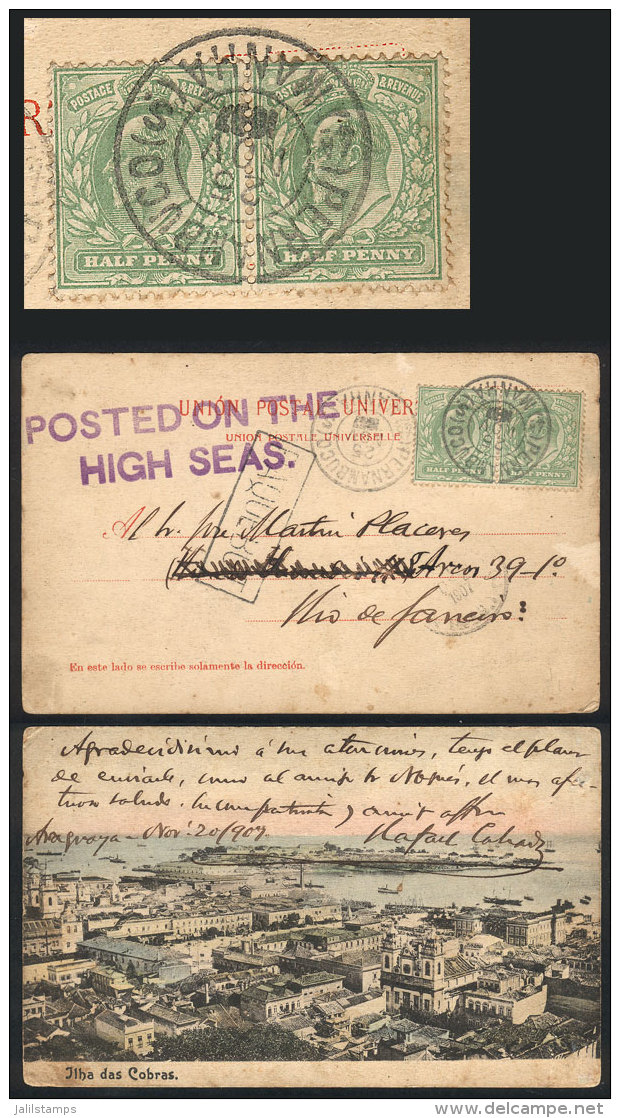 POSTAGE & REVENUE
HALF PENNY HALF PENNY
UNIÓN POSTAL UNIVER
UNION POSTALE UNIVERSELLE
POSTED ON THE
HIGH SEAS.
HALF PENNY HALF PENNY
Al Sr. José Martin Placeres
Arcos 39-1º
Rio de Janeiro
1907
En este lado se escribe solamente la dirección.
Agradecidisimo á sus atenciones, tengo el placer
de enviarle, como al amigo Sr Nogués, el mas afec-
tuoso saludo. Su compatriota y amigo affmo
Araguaya - Novº. 20/907. Rafael
Ilha das Cobras.
jalilstamps
delcampe.net